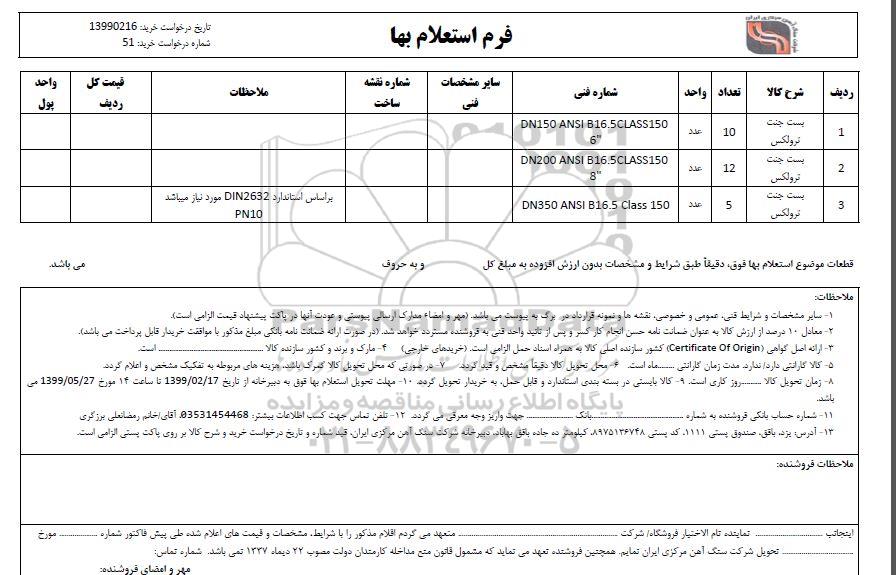 فرم استعلام بها
تاریخ درخواست خرید: 13990216
شماره درخواست خرید: 51
ردیف شرح کالا تعداد واحد شماره فنی سایر مشخصات فنی شماره نقشه ساخت ملاحظات قیمت کل ردیف واحد پول
1 بست جنت ترولکس 10 عدد DN150 ANSI B16.5CLASS150 6"
2 بست جنت ترولکس 12 عدد DN200 ANSI B16.5CLASS150 8"
3 بست جنت ترولکس 5 عدد DN350 ANSI B16.5 Class 150 براساس استاندارد DIN2632 مورد نیاز میباشد PN10
قطعات موضوع استعلام بها فوق، دقیقاً طبق شرایط و مشخصات بدون ارزش افزوده به مبلغ کل و به حروف می باشد.
ملاحظات:
۱- سایر مشخصات و شرایط فنی، عمومی و خصوصی، نقشه ها و نمونه قرارداد در برگ به پیوست می باشد. (مهر و امضاء مدارک ارسالی پیوستی و عودت آنها در پاکت پیشنهاد قیمت الزامی است).
۲- معادل ۱۰ درصد از ارزش کالا به عنوان ضمانت نامه حسن انجام کار کسر و پس از تائید واحد فنی به فروشنده مسترد خواهد شد. (در صورت ارائه ضمانت نامه بانکی مبلغ مذکور با موافقت خریدار قابل پرداخت می باشد).
۳- ارائه اصل گواهی (Certificate Of Origin) کشور سازنده اصلی کالا به همراه اسناد حمل الزامی است. (خریدهای خارجی) ۴- مارک و برند و کشور سازنده کالا ........ است.
۵- کالا گارانتی دارد/ ندارد. مدت زمان گارانتی ........ماه است. ۶- محل تحویل کالا دقیقاً مشخص و قید گردد. ۷- در صورتی که محل تحویل کالا گمرک باشد، هزینه های مربوطه به تفکیک مشخص و اعلام گردد.
۸- زمان تحویل کالا ........روز کاری است. ۹- کالا بایستی در بسته بندی استاندارد و قابل حمل، به خریدار تحویل گردد. ۱۰- مهلت تحویل استعلام بها فوق به دبیرخانه از تاریخ 1399/02/17 تا ساعت ۱۴ مورخ 1399/05/27 می
باشد.
۱۱- شماره حساب بانکی فروشنده به شماره ........بانک ........ جهت واریز وجه معرفی می گردد. ۱۲- تلفن تماس جهت کسب اطلاعات بیشتر: 03531454468. آقای/خانم رمضانعلی برزگری
۱۳- آدرس: یزد، بافق، صندوق پستی ۱۱۱۱، کد پستی ۸۹۷۵۱۳۶۷۴۸، کیلومتر ده جاده بافق بهاباد، دبیرخانه شرکت سنگ آهن مرکزی ایران، قید شماره و تاریخ درخواست خرید و شرح کالا بر روی پاکت پستی الزامی است.
ملاحظات فروشنده:
اینجانب ........ نماینده تام الاختیار فروشگاه/ شرکت ........ متعهد می گردم اقلام مذکور را با شرایط، مشخصات و قیمت های اعلام شده طی پیش فاکتور شماره ........ مورخ
........ تحویل شرکت سنگ آهن مرکزی ایران نمایم. همچنین فروشنده تعهد می نماید که مشمول قانون منع مداخله کارمندان دولت مصوب ۲۲ دیماه ۱۳۳۷ نمی باشد. شماره تماس:
مهر و امضای فروشنده:
پایگاه اطلاع رسانی مناقصه و مزایده
۰۲۱-۸۸۳۴۹۶۷۰-۵